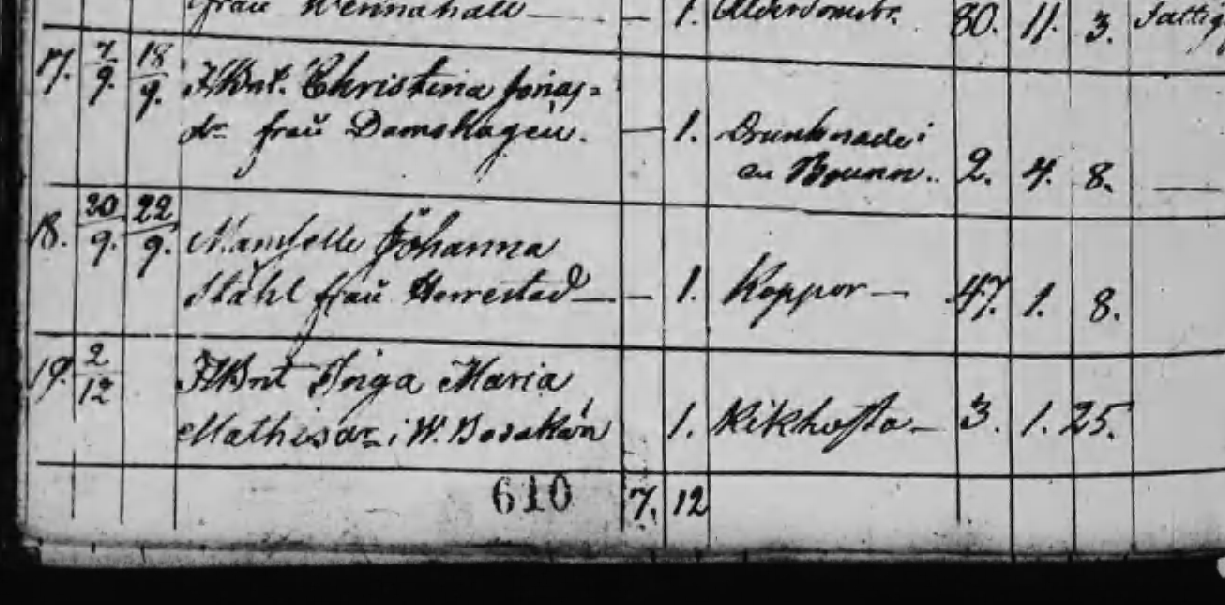 från Wennahall — — 1. Ålderdomsbr. 80. 11. 3. Fattig
17. 7/9. 18/9. HBnt. Christina Jonas=
dr från Damshagen. — 1. Drunknade i
en Brunn. 2. 4. 8. —
18. 20/9. 22/9. Mamselle Johanna
Ståhl från Herrestad — — 1. Koppor — 47. 1. 8.
19. 2/12 HBnt Inga Maria
Mathisdr i W. 1. Kikhosta — 3. 1. 25.
610 7. 12